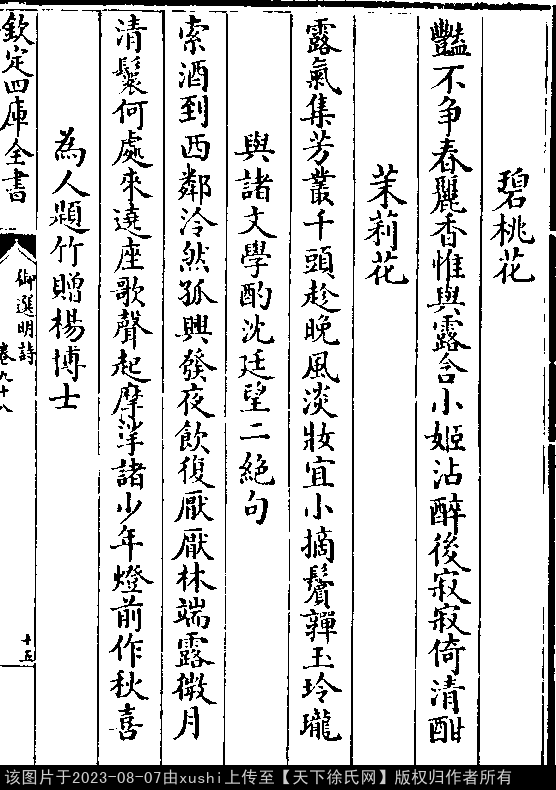 碧桃花
豔不争春麗香惟與露含小姬沾醉後寂寂倚清酣
茉莉花
露氣集芳叢千頭趁晚風淡妝宜小摘鬢嚲玉玲瓏
與諸文學酌沈廷望二絶句
索酒到西鄰泠然孤興發夜飲復厭厭林端露微月
清鬟何處來遶座歌聲起摩挲諸少年燈前作秋喜
為人題竹贈楊博士
欽定四庫全書
御選明詩
卷九十八
十五
该图片于2023-08-07由xushi上传至【天下徐氏网】版权归作者所有